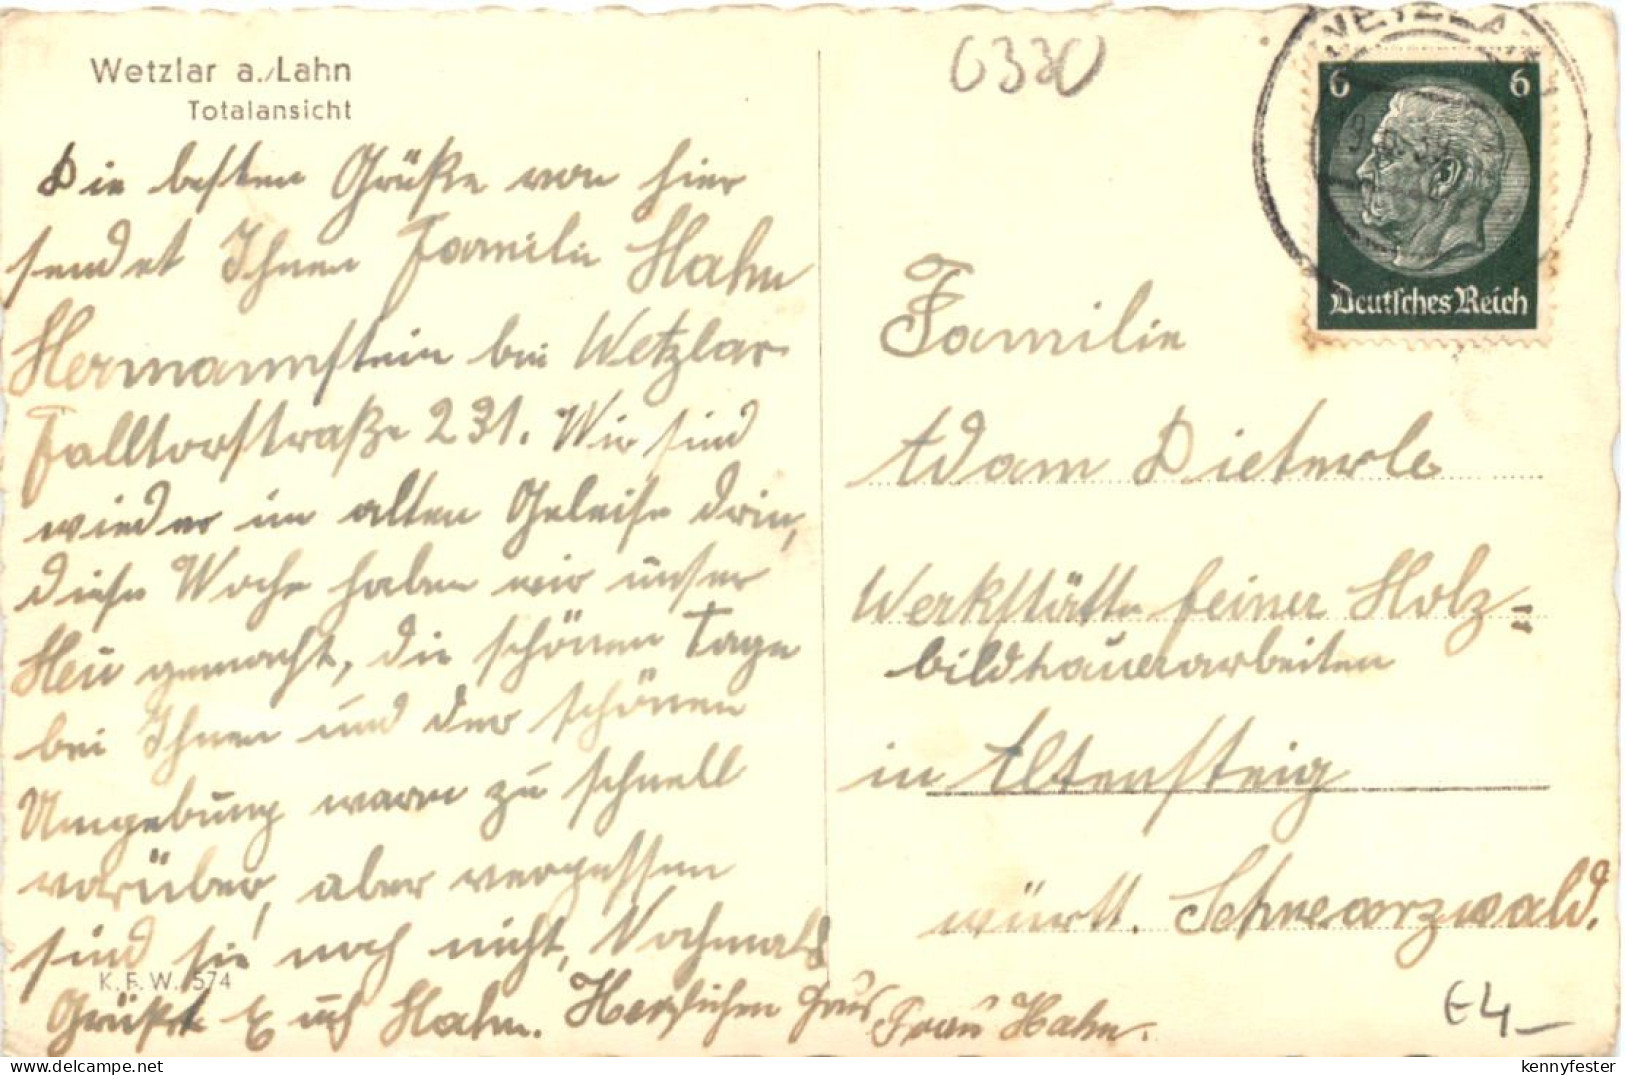 Wetzlar a./Lahn
Totalansicht
Die besten Grüße von hier
sendet Ihnen Familie Hahn
Hermannstein bei Wetzlar
Falltorstraße 231. Wir sind
wieder im alten Geleise drin,
diese Woche haben wir unser
Heu gemacht, die schönen Tage
bei Ihnen und der schönen
Umgebung waren zu schnell
vorüber, aber vergessen
sind sie noch nicht, Nochmals
K.F.W. 574
Grüßt Euch Hahn. Herzlichen Frau Hahn.
6330
WETZLAR
6 6
Deutsches Reich
Familie
Adam Dieterle
Werkstätte feiner Holz-
bildhauerarbeiten
in Altensteig
württ. Schwarzwald.
E4-
https://www.delcampe.net
kennyfester